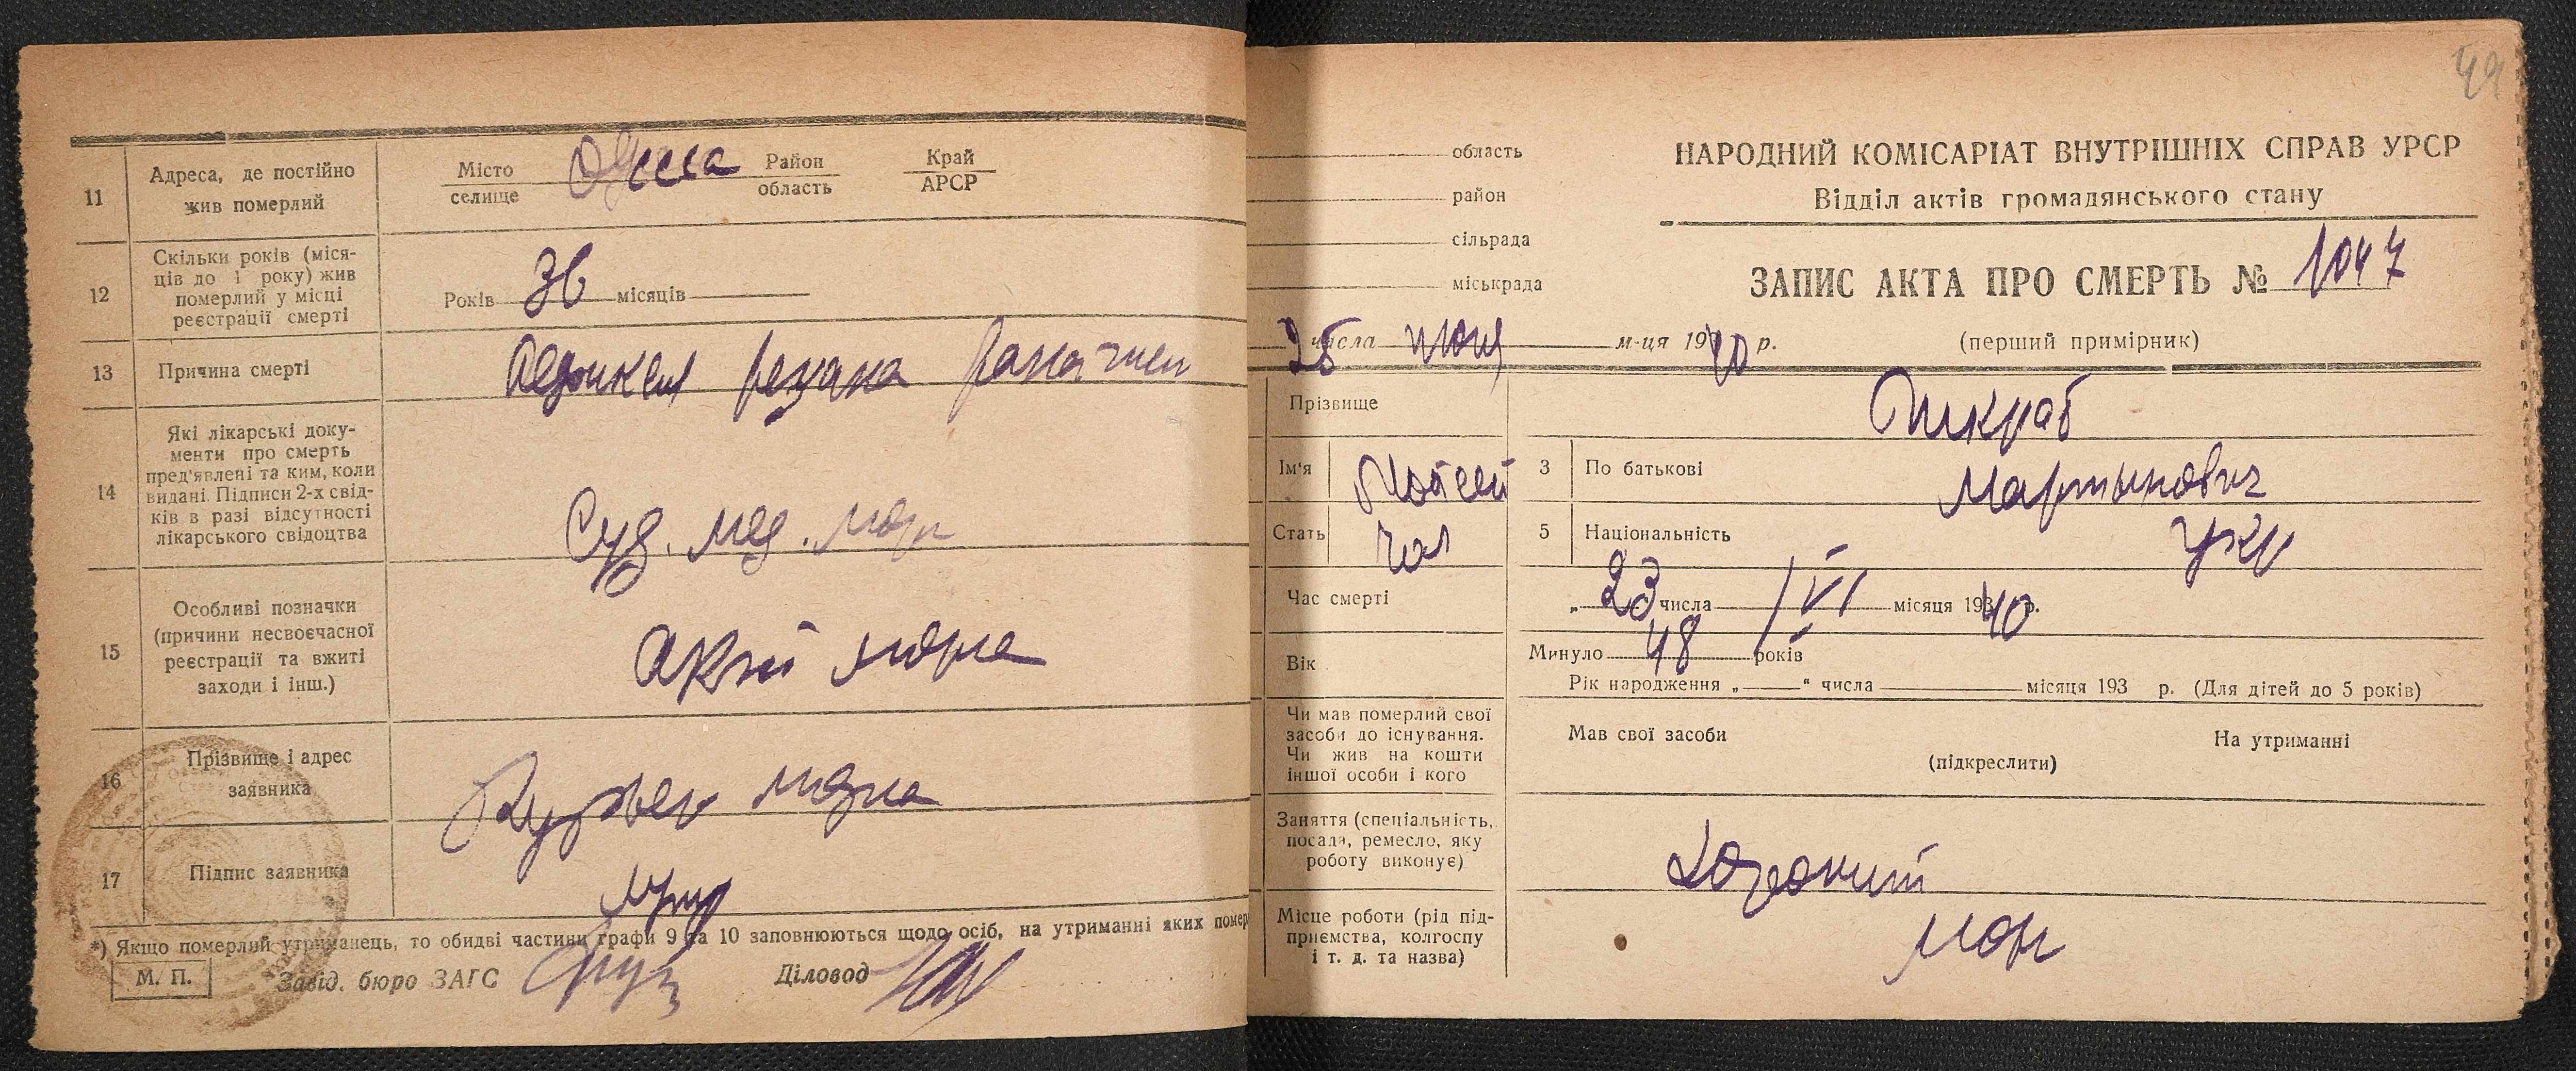 11
Адреса, де постійно
жив померлий
Місто
селище
Одесса
Район
область
Край
АРСР
12
Скільки років (міся-
ців до 1 року) жив
померлий у місці
реєстрації смерті
Років 36 місяців
13
Причина смерті
резаная рана шеи
14
Які лікарські доку-
менти про смерть
пред'явлені та ким, коли
видані. Підписи 2-х свід-
ків в разі відсутності
лікарського свідоцтва
Суд. мед. морг
15
Особливі позначки
(причини несвоєчасної
реєстрації та вжиті
заходи і інш.)
морга
16
Прізвище і адрес
заявника
Курьер морга
17
Підпис заявника
*) Якщо померлий утриманець, то обидві частини графи 9 та 10 заповнюються щодо осіб, на утриманні яких помер
М. П.
Завід. бюро ЗАГС
Діловод
49
область
район
сільрада
міськрада
НАРОДНИЙ КОМІСАРІАТ ВНУТРІШНІХ СПРАВ УРСР
Відділ актів громадянського стану
ЗАПИС АКТА ПРО СМЕРТЬ № 1047
25 числа июня м-ця 1940 р.
(перший примірник)
Прізвище
Шкраб
Ім'я
Мойсей
3
По батькові
Мартынович
Стать
чол
5
Національність
укр
Час смерті
„ 23 числа VI місяця 1940 р.
Вік
Минуло 48 років
Рік народження „ “ числа місяця 193 р. (Для дітей до 5 років)
Чи мав померлий свої
засоби до існування.
Чи жив на кошти
іншої особи і кого
Мав свої засоби
На утриманні
(підкреслити)
Заняття (спеціальність,
посада, ремесло, яку
роботу виконує)
Місце роботи (рід під-
приємства, колгоспу
і т. д. та назва)